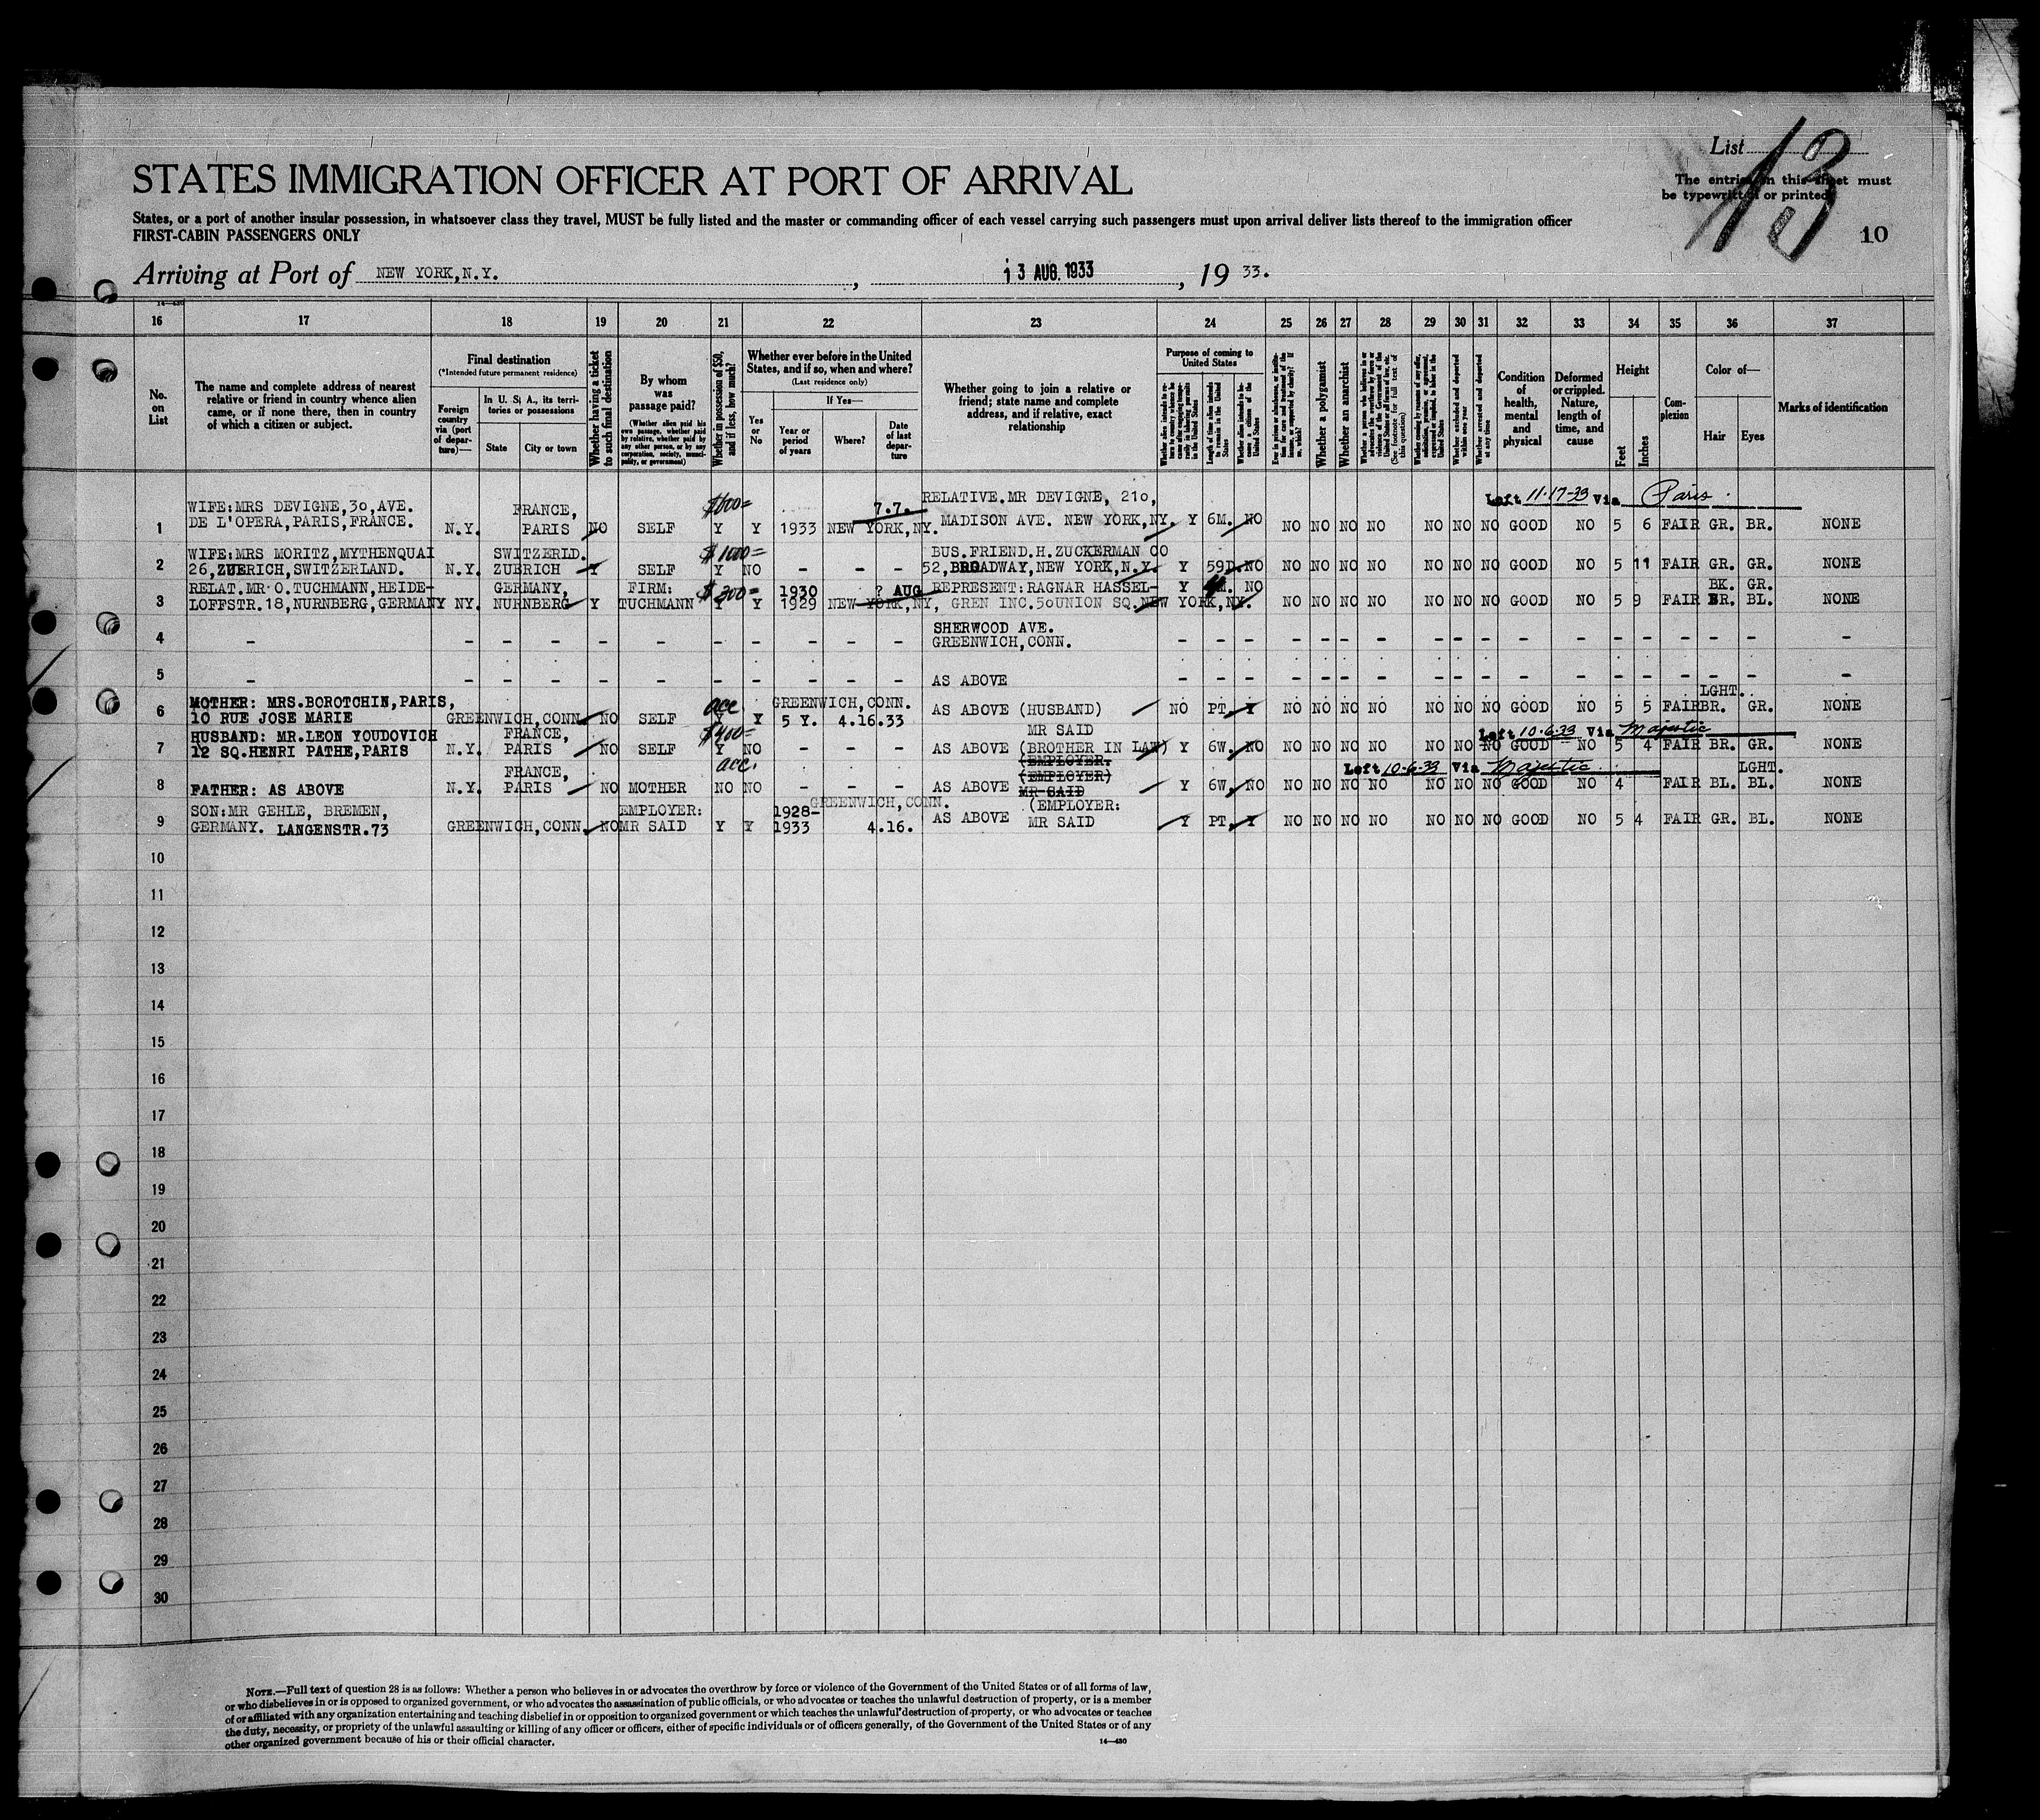 List 13
STATES IMMIGRATION OFFICER AT PORT OF ARRIVAL
The entries on this sheet must
be typewritten or printed.
States, or a port of another insular possession, in whatsoever class they travel, MUST be fully listed and the master or commanding officer of each vessel carrying such passengers must upon arrival deliver lists thereof to the immigration officer
FIRST-CABIN PASSENGERS ONLY
10
Arriving at Port of NEW YORK,N.Y. , 13 AUG. 1933 , 19 33.
14—430
16 17 18 19 20 21 22 23 24 25 26 27 28 29 30 31 32 33 34 35 36 37
No. on List
The name and complete address of nearest relative or friend in country whence alien came, or if none there, then in country of which a citizen or subject.
Final destination
(*Intended future permanent residence)
Foreign country via (port of departure)—
In U. S. A., its territories or possessions
State
City or town
Whether having a ticket to such final destination
By whom was passage paid?
(Whether alien paid his own passage, whether paid by relative, whether paid by any other person, or by any corporation, society, municipality, or government)
Whether in possession of $50, and if less, how much?
Whether ever before in the United States, and if so, when and where?
(Last residence only)
Yes or No
If Yes—
Year or period of years
Where?
Date of last departure
Whether going to join a relative or friend; state name and complete address, and if relative, exact relationship
Purpose of coming to United States
Length of time alien intends to remain in the United States
Whether a polygamist
Whether an anarchist
(See footnote for full text of this question)
Whether excluded and deported within one year
Whether arrested and deported at any time
Condition of health, mental and physical
Deformed or crippled. Nature, length of time, and cause
Height
Feet
Inches
Complexion
Color of—
Hair
Eyes
Marks of identification
$600= 7.7. RELATIVE.MR DEVIGNE, 210, Left 11-17-33 Via Paris
WIFE:MRS DEVIGNE,30,AVE. FRANCE,
1 DE L'OPERA,PARIS,FRANCE. N.Y. PARIS NO SELF Y Y 1933 NEW YORK,NY. MADISON AVE. NEW YORK,NY. Y 6M. NO NO NO NO NO NO NO NO GOOD NO 5 6 FAIR GR. BR. NONE
WIFE:MRS MORITZ,MYTHENQUAI SWITZERLD. $1000= BUS.FRIEND.H.ZUCKERMAN CO
2 26,ZUERICH,SWITZERLAND. N.Y. ZUERICH Y SELF Y NO - - - 52,BROADWAY,NEW YORK,N.Y. Y 59D. NO NO NO NO NO NO NO NO GOOD NO 5 11 FAIR GR. GR. NONE
RELAT.MR O.TUCHMANN,HEIDE- GERMANY, FIRM: $300= 1930 ? AUG REPRESENT:RAGNAR HASSEL- Y M. NO BK. GR.
3 LOFFSTR.18,NURNBERG,GERMANY NY. NURNBERG Y TUCHMANN Y Y 1929 NEW YORK,NY, GREN INC.50UNION SQ.NEW YORK,NY. NO NO NO NO NO NO NO GOOD NO 5 9 FAIR BR. BL. NONE
SHERWOOD AVE.
4 - - - - - - - - - - - GREENWICH,CONN. - - - - - - - - - - - - - - - - - -
5 - - - - - - - - - - - AS ABOVE - - - - - - - - - - - - - - - - - -
MOTHER: MRS.BOROTCHIN,PARIS, acc. GREENWICH,CONN. LGHT.
6 10 RUE JOSE MARIE GREENWICH,CONN. NO SELF Y Y 5 Y. 4.16.33 AS ABOVE (HUSBAND) NO PT. Y NO NO NO NO NO NO NO GOOD NO 5 5 FAIR BR. GR. NONE
HUSBAND: MR.LEON YOUDOVICH FRANCE, $400= MR SAID Left 10-6-33 Via Majestic
7 12 SQ.HENRI PATHE,PARIS N.Y. PARIS NO SELF Y NO - - - AS ABOVE (BROTHER IN LAW) Y 6W. NO NO NO NO NO NO NO NO GOOD NO 5 4 FAIR BR. GR. NONE
(EMPLOYER.
FRANCE, acc. (EMPLOYER) Left 10-6-33 Via Majestic LGHT.
8 FATHER: AS ABOVE N.Y. PARIS NO MOTHER NO NO - - - AS ABOVE MR SAID Y 6W. NO NO NO NO NO NO NO NO GOOD NO 4 FAIR BL. BL. NONE
SON:MR GEHLE, BREMEN, EMPLOYER: 1928- GREENWICH,CONN. (EMPLOYER:
9 GERMANY. LANGENSTR.73 GREENWICH,CONN. NO MR SAID Y Y 1933 4.16. AS ABOVE MR SAID Y PT. Y NO NO NO NO NO NO NO GOOD NO 5 4 FAIR GR. BL. NONE
10
11
12
13
14
15
16
17
18
19
20
21
22
23
24
25
26
27
28
29
30
NOTE.—Full text of question 28 is as follows: Whether a person who believes in or advocates the overthrow by force or violence of the Government of the United States or of all forms of law,
or who disbelieves in or is opposed to organized government, or who advocates the assassination of public officials, or who advocates or teaches the unlawful destruction of property, or is a member
of or affiliated with any organization entertaining and teaching disbelief in or opposition to organized government or which teaches the unlawful destruction of property, or who advocates or teaches
the duty, necessity, or propriety of the unlawful assaulting or killing of any officer or officers, either of specific individuals or of officers generally, of the Government of the United States or of any
other organized government because of his or their official character.
14—430